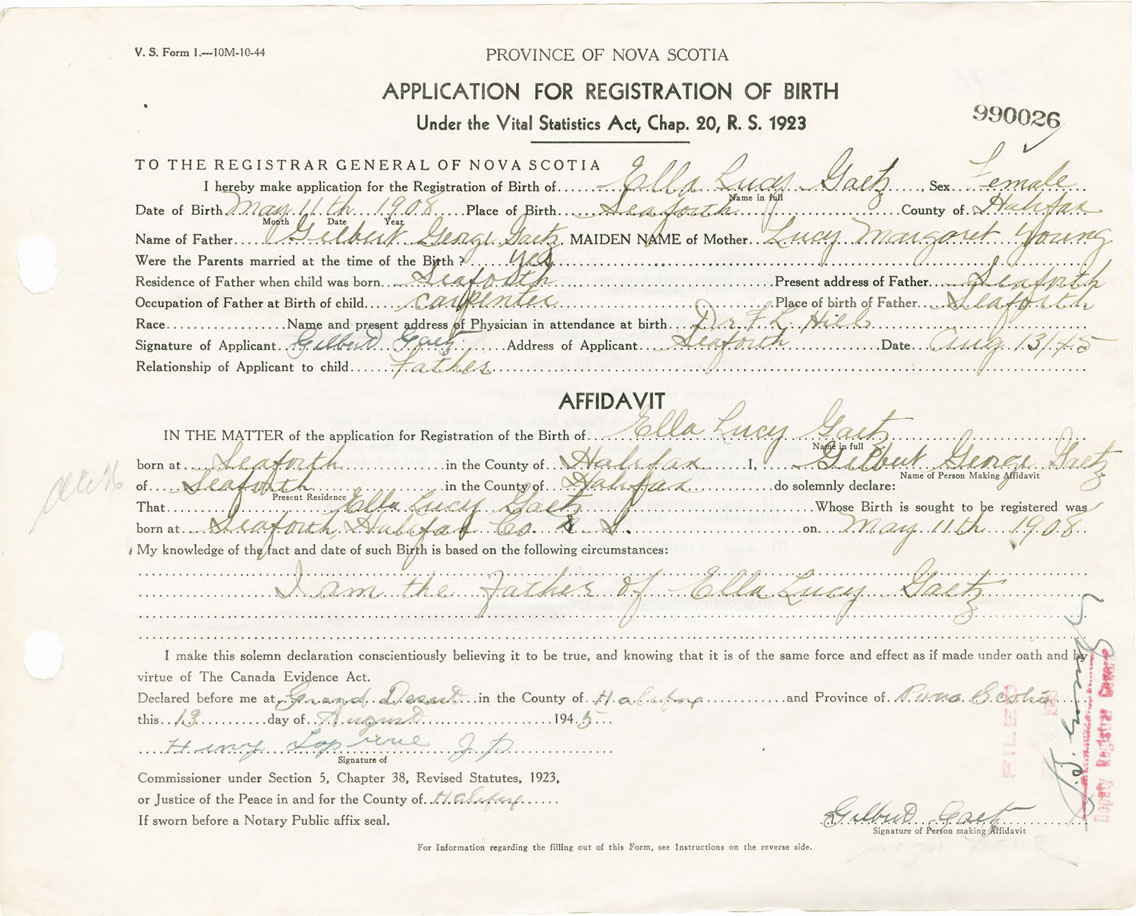 V. S. Form 1.—10M-10-44
PROVINCE OF NOVA SCOTIA
APPLICATION FOR REGISTRATION OF BIRTH
Under the Vital Statistics Act, Chap. 20, R. S. 1923
990026
TO THE REGISTRAR GENERAL OF NOVA SCOTIA
I hereby make application for the Registration of Birth of Ella Lucy Gaetz, Sex Female
Name in full
Date of Birth May 11th 1908 Place of Birth Seaforth County of Halifax
Month Date Year
Name of Father Gilbert George Gaetz MAIDEN NAME of Mother Lucy Margaret Young
Were the Parents married at the time of the Birth? yes
Residence of Father when child was born Seaforth Present address of Father Seaforth
Occupation of Father at Birth of child carpenter Place of birth of Father Seaforth
Race Name and present address of Physician in attendance at birth Dr F. L. Hill
Signature of Applicant Gilbert Gaetz Address of Applicant Seaforth Date Aug 13/45
Relationship of Applicant to child Father
AFFIDAVIT
IN THE MATTER of the application for Registration of the Birth of Ella Lucy Gaetz
Name in full
born at Seaforth in the County of Halifax I, Gilbert George Gaetz
Name of Person Making Affidavit
of Seaforth in the County of Halifax do solemnly declare:
Present Residence
That Ella Lucy Gaetz Whose Birth is sought to be registered was
born at Seaforth Halifax Co. N. S. on May 11th 1908
My knowledge of the fact and date of such Birth is based on the following circumstances:
I am the Father of Ella Lucy Gaetz
I make this solemn declaration conscientiously believing it to be true, and knowing that it is of the same force and effect as if made under oath and by
virtue of The Canada Evidence Act.
Declared before me at Grand Desert in the County of Halifax and Province of Nova Scotia
this 13 day of August 1945
Henry Lapierre J.P.
Signature of
Commissioner under Section 5, Chapter 38, Revised Statutes, 1923,
or Justice of the Peace in and for the County of Halifax
If sworn before a Notary Public affix seal.
Gilbert Gaetz
Signature of Person making Affidavit
For Information regarding the filling out of this Form, see Instructions on the reverse side.
FILED
Deputy Registrar General